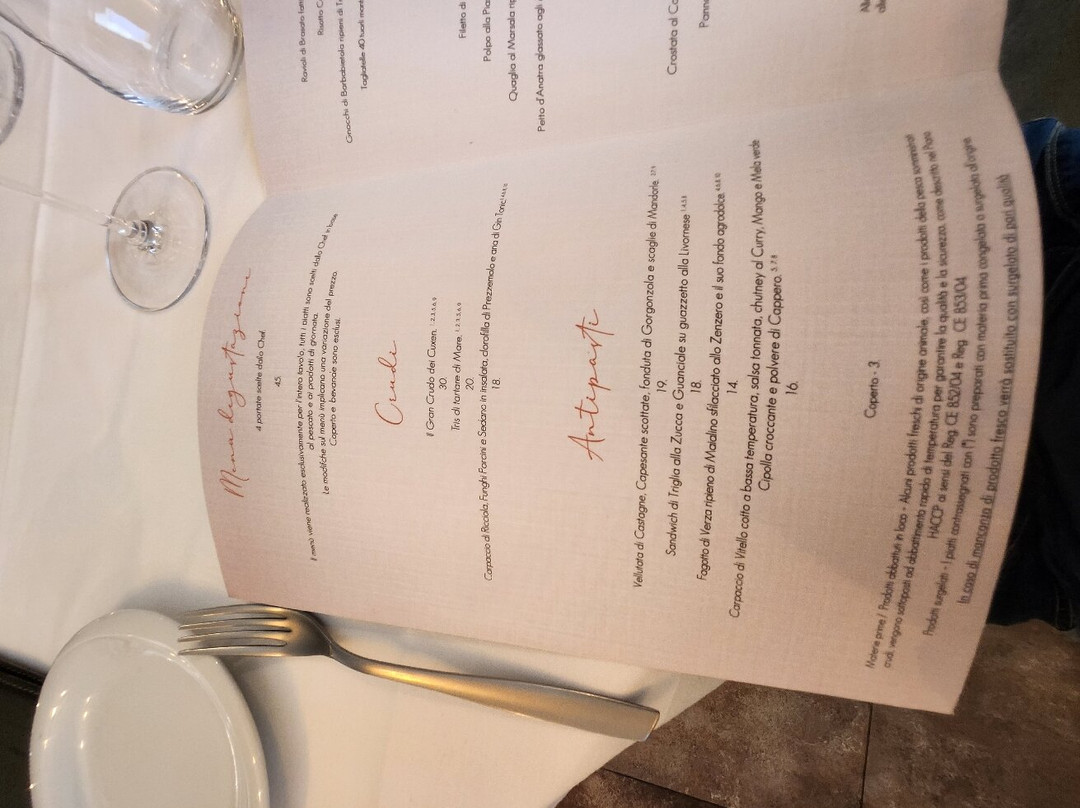 Menu degustazione
4 portate scelte dallo Chef.
45
Il menù viene realizzato esclusivamente per l'intero tavolo, tutti i piatti sono scelti dallo Chef in base
al pescato e ai prodotti di giornata.
Le modifiche sul menù implicano una variazione del prezzo.
Coperto e bevande sono esclusi.
Crudi
Il Gran Crudo dei Cuxen. 1.2.3.5.6.9
30.
Tris di tartare di Mare. 1.2.3.5.6.9
20
Carpaccio di Ricciola, Funghi Porcini e Sedano in insalata, clorofilla di Prezzemolo e aria di Gin Tonic
18.
Antipasti
Vellutata di Castagne, Capesante scottate, fonduta di Gorgonzola e scaglie di Mandorle.
19.
Sandwich di Triglia alla Zucca e Guanciale su guazzetto alla Livornese 1.4.5.8
18.
Fagotto di Verza ripieno di Maialino sfilacciato allo Zenzero e il suo fondo agrodolce.
14.
Carpaccio di Vitello cotto a bassa temperatura, salsa tonnata, chutney al Curry, Mango e Mela verde
Cipolla croccante e polvere di Cappero. 3.7.8
16.
Coperto - 3
Materie prime / Prodotti abbattuti in loco - Alcuni prodotti freschi di origine animale, così come i prodotti della pesca somministrati
crudi, vengono sottoposti ad abbattimento rapido di temperatura per garantire la qualità e la sicurezza, come descritto nel Piano
HACCP ai sensi del Reg. CE 852/04 e Reg. CE 853/04
Prodotti surgelati - I piatti contrassegnati con (*) sono preparati con materia prima congelata o surgelata all'origine
In caso di mancanza di prodotto fresco verrà sostituito con surgelato di pari qualità
Ravioli di Brasato
Risotto
Gnocchi di Barbabietola ripieni di
Tagliatelle 40 tuorli
Filetto di
Polpo alla
Quaglia al Marsala
Petto d'Anatra glassato agli
Crostata al